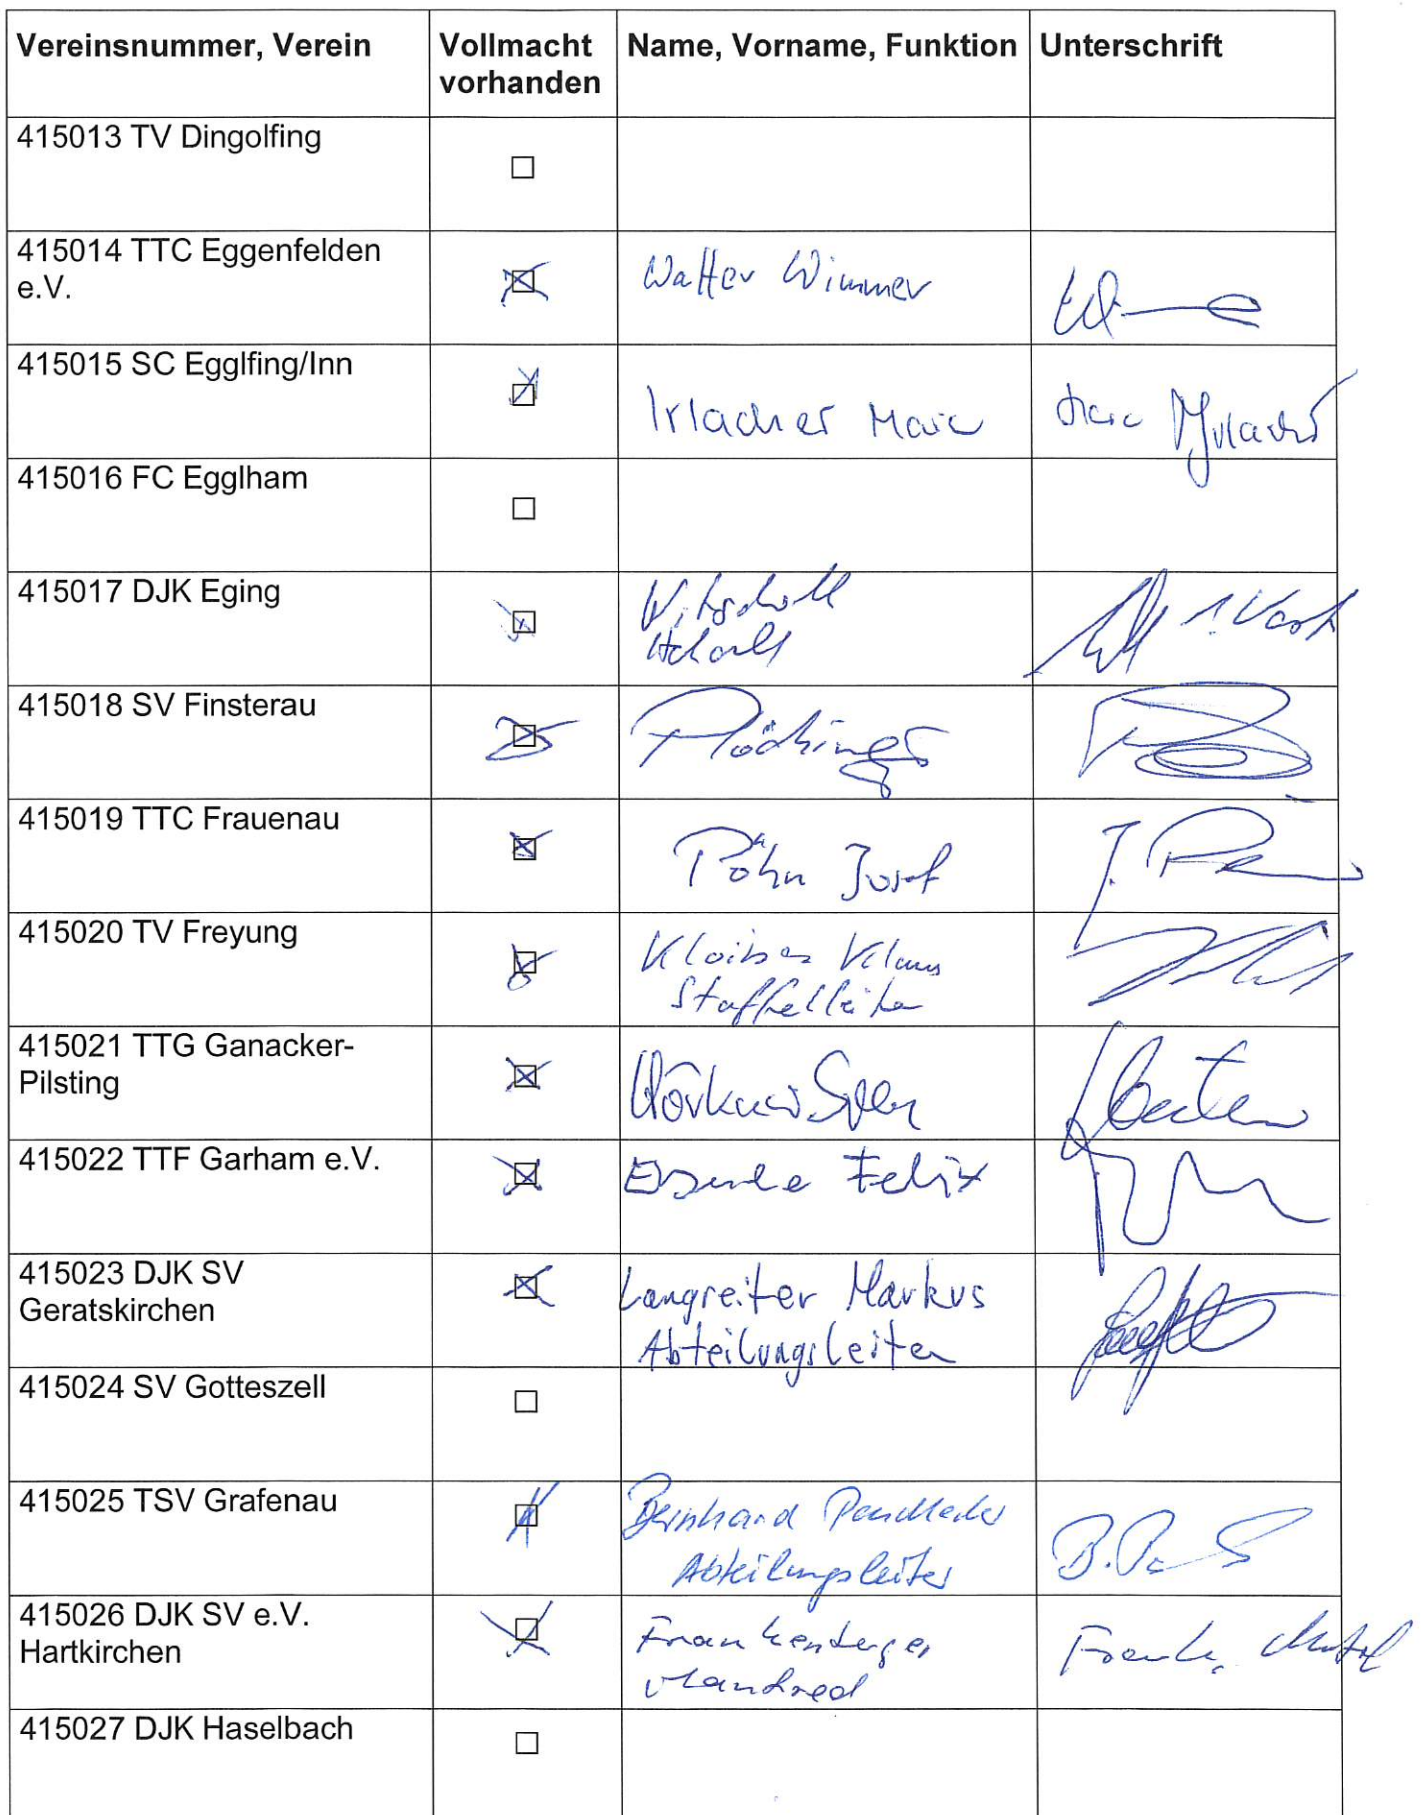 Vereinsnummer, Verein Vollmacht vorhanden Name, Vorname, Funktion Unterschrift
415013 TV Dingolfing ☐
415014 TTC Eggenfelden
e.V. ☒ Walter Wimmer
415015 SC Egglfing/Inn ☒ Irlacher Marc
415016 FC Egglham ☐
415017 DJK Eging ☒
1. Vorst
415018 SV Finsterau ☒ Plöchinger
415019 TTC Frauenau ☒ Pöhn Josef
415020 TV Freyung ☒ Klaus
Staffelleiter
415021 TTG Ganacker-
Pilsting ☒
415022 TTF Garham e.V. ☒ Felix
415023 DJK SV
Geratskirchen ☒ Langreiter Markus
Abteilungsleiter
415024 SV Gotteszell ☐
415025 TSV Grafenau ☒ Bernhard
Abteilungsleiter
415026 DJK SV e.V.
Hartkirchen ☒ Frankenberger
Manfred
415027 DJK Haselbach ☐